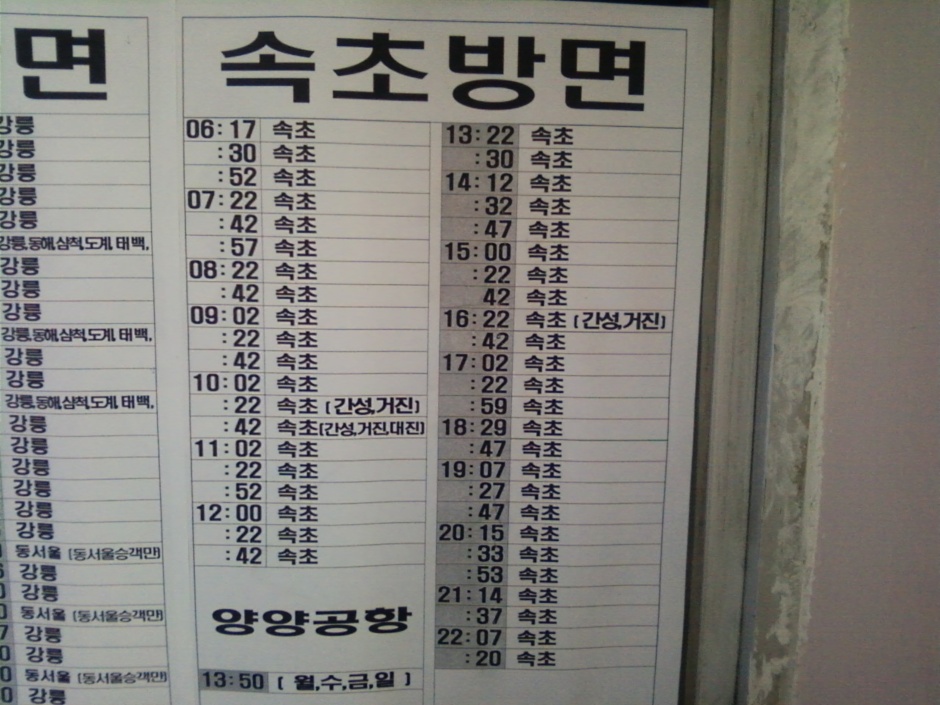 면
강릉
강릉
강릉
강릉
강릉
강릉,동해,삼척,도계, 태백,
강릉
강릉
강릉
강릉,동해,삼척,도계, 태백,
강릉
강릉
강릉,동해,삼척,도계, 태백,
강릉
강릉
강릉
강릉
강릉
강릉
동서울 (동서울승객만)
강릉
강릉
0 동서울 (동서울승객만)
7 강릉
0 강릉
0 동서울 (동서울승객만)
0 강릉
속초방면
06:17 속초
:30 속초
:52 속초
07:22 속초
:42 속초
:57 속초
08:22 속초
:42 속초
09:02 속초
:22 속초
:42 속초
10:02 속초
:22 속초 (간성,거진)
:42 속초(간성,거진,대진)
11:02 속초
:22 속초
:52 속초
12:00 속초
:22 속초
:42 속초
양양공항
13:50 ( 월,수,금,일 )
13:22 속초
:30 속초
14:12 속초
:32 속초
:47 속초
15:00 속초
:22 속초
42 속초
16:22 속초 (간성,거진)
:42 속초
17:02 속초
:22 속초
:59 속초
18:29 속초
:47 속초
19:07 속초
:27 속초
:47 속초
20:15 속초
:33 속초
:53 속초
21:14 속초
:37 속초
22:07 속초
:20 속초